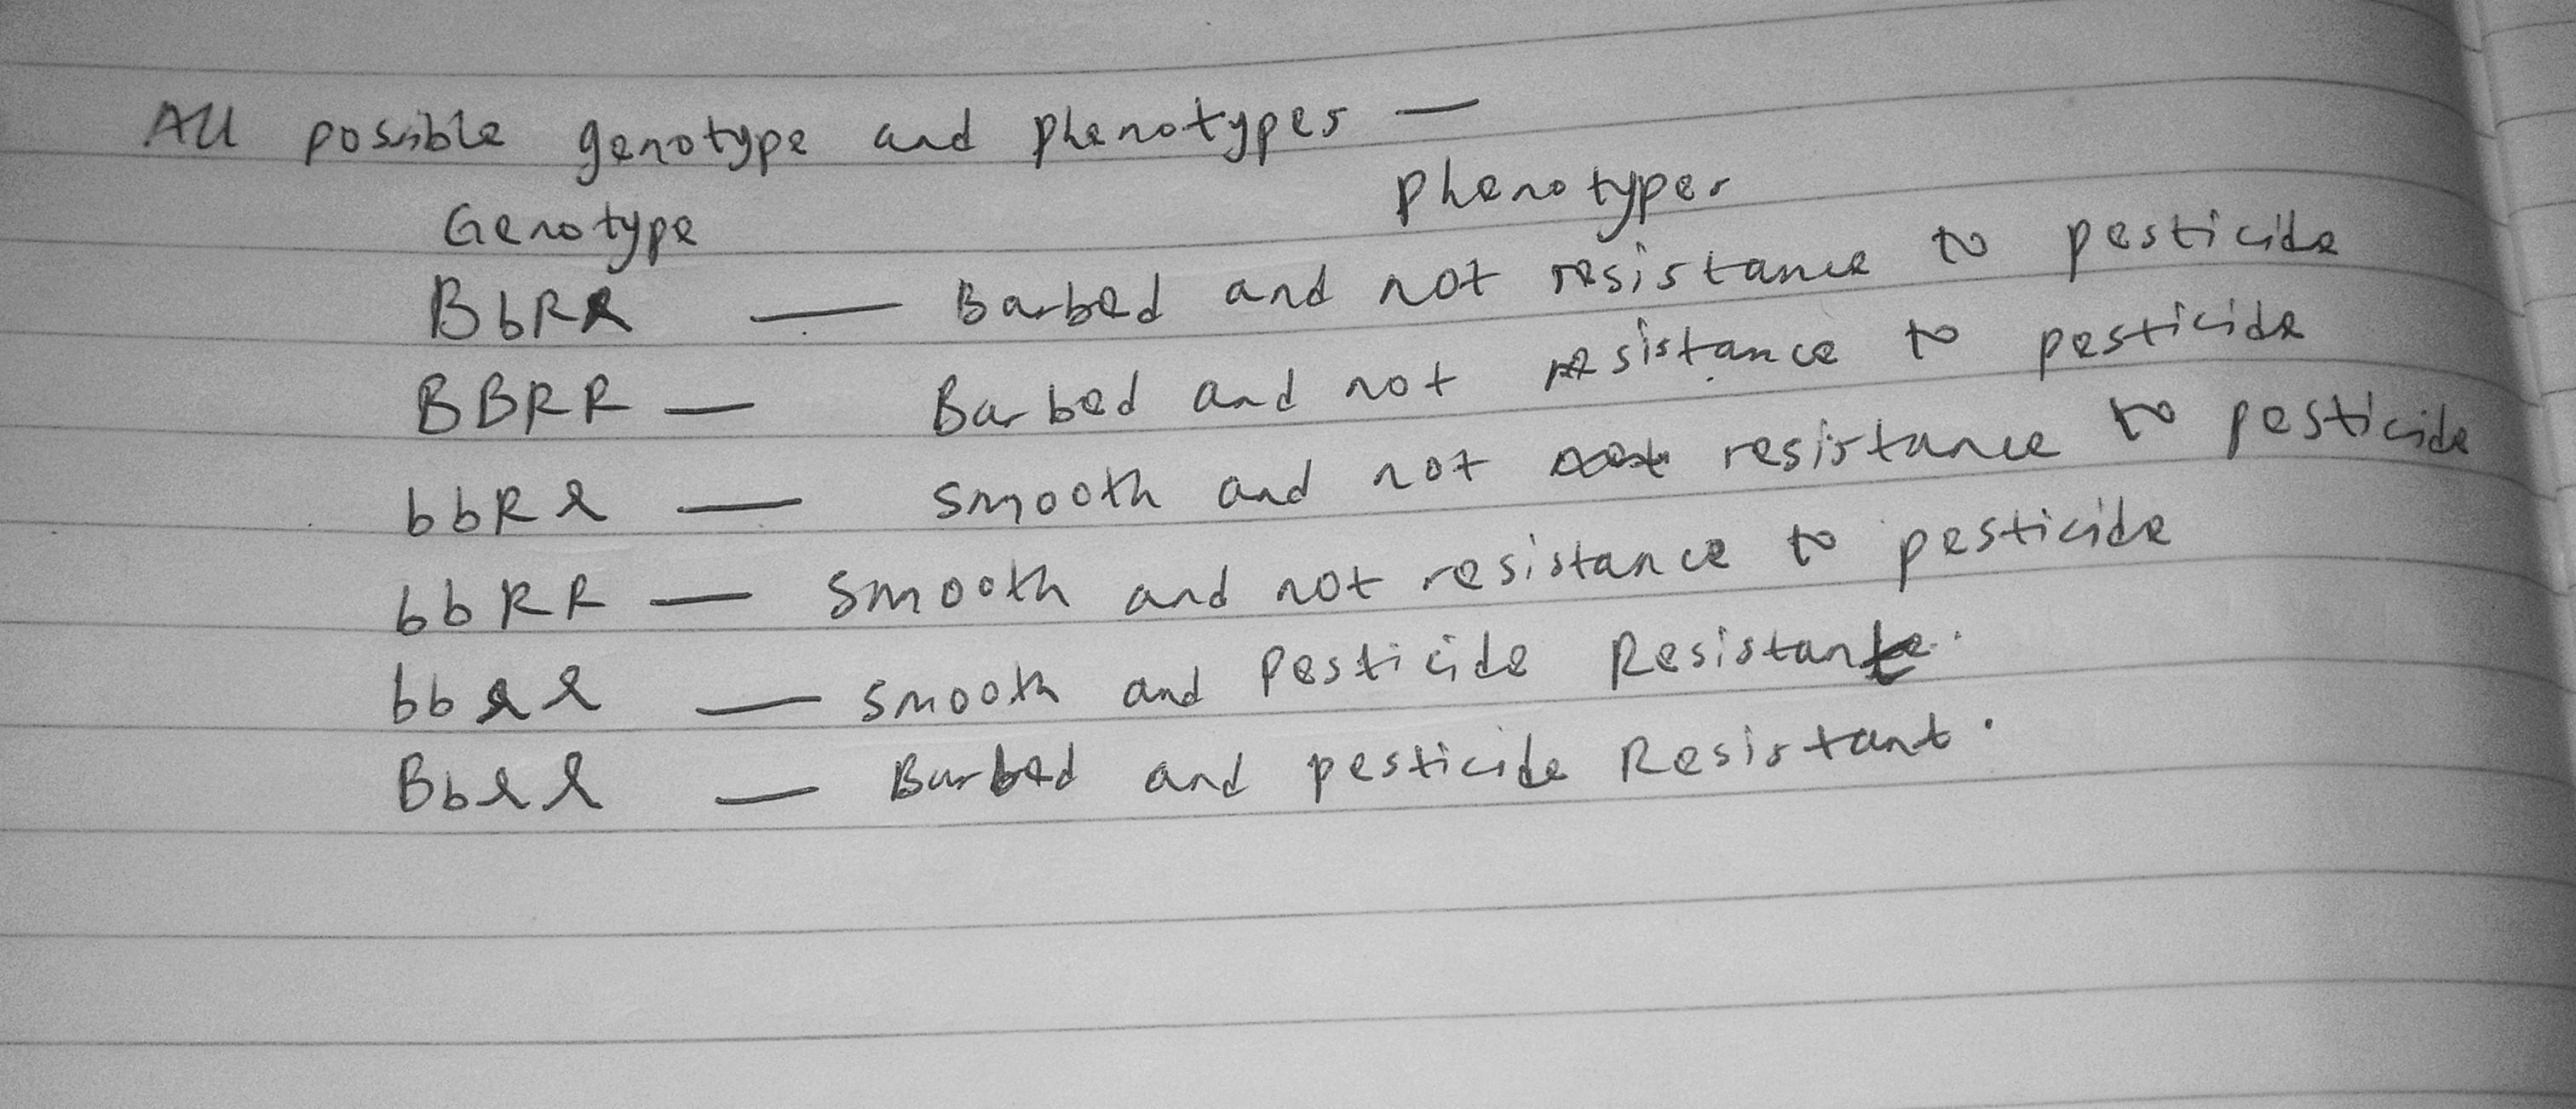 All possible genotype and phenotypes —
Genotype Phenotypes
BbRr — Barbed and not resistance to pesticide
BBRR — Barbed and not resistance to pesticide
bbRr — smooth and not resistance to pesticide
bbRR — smooth and not resistance to pesticide
bbrr — smooth and Pesticide Resistant.
Bbrr — Barbed and pesticide Resistant.